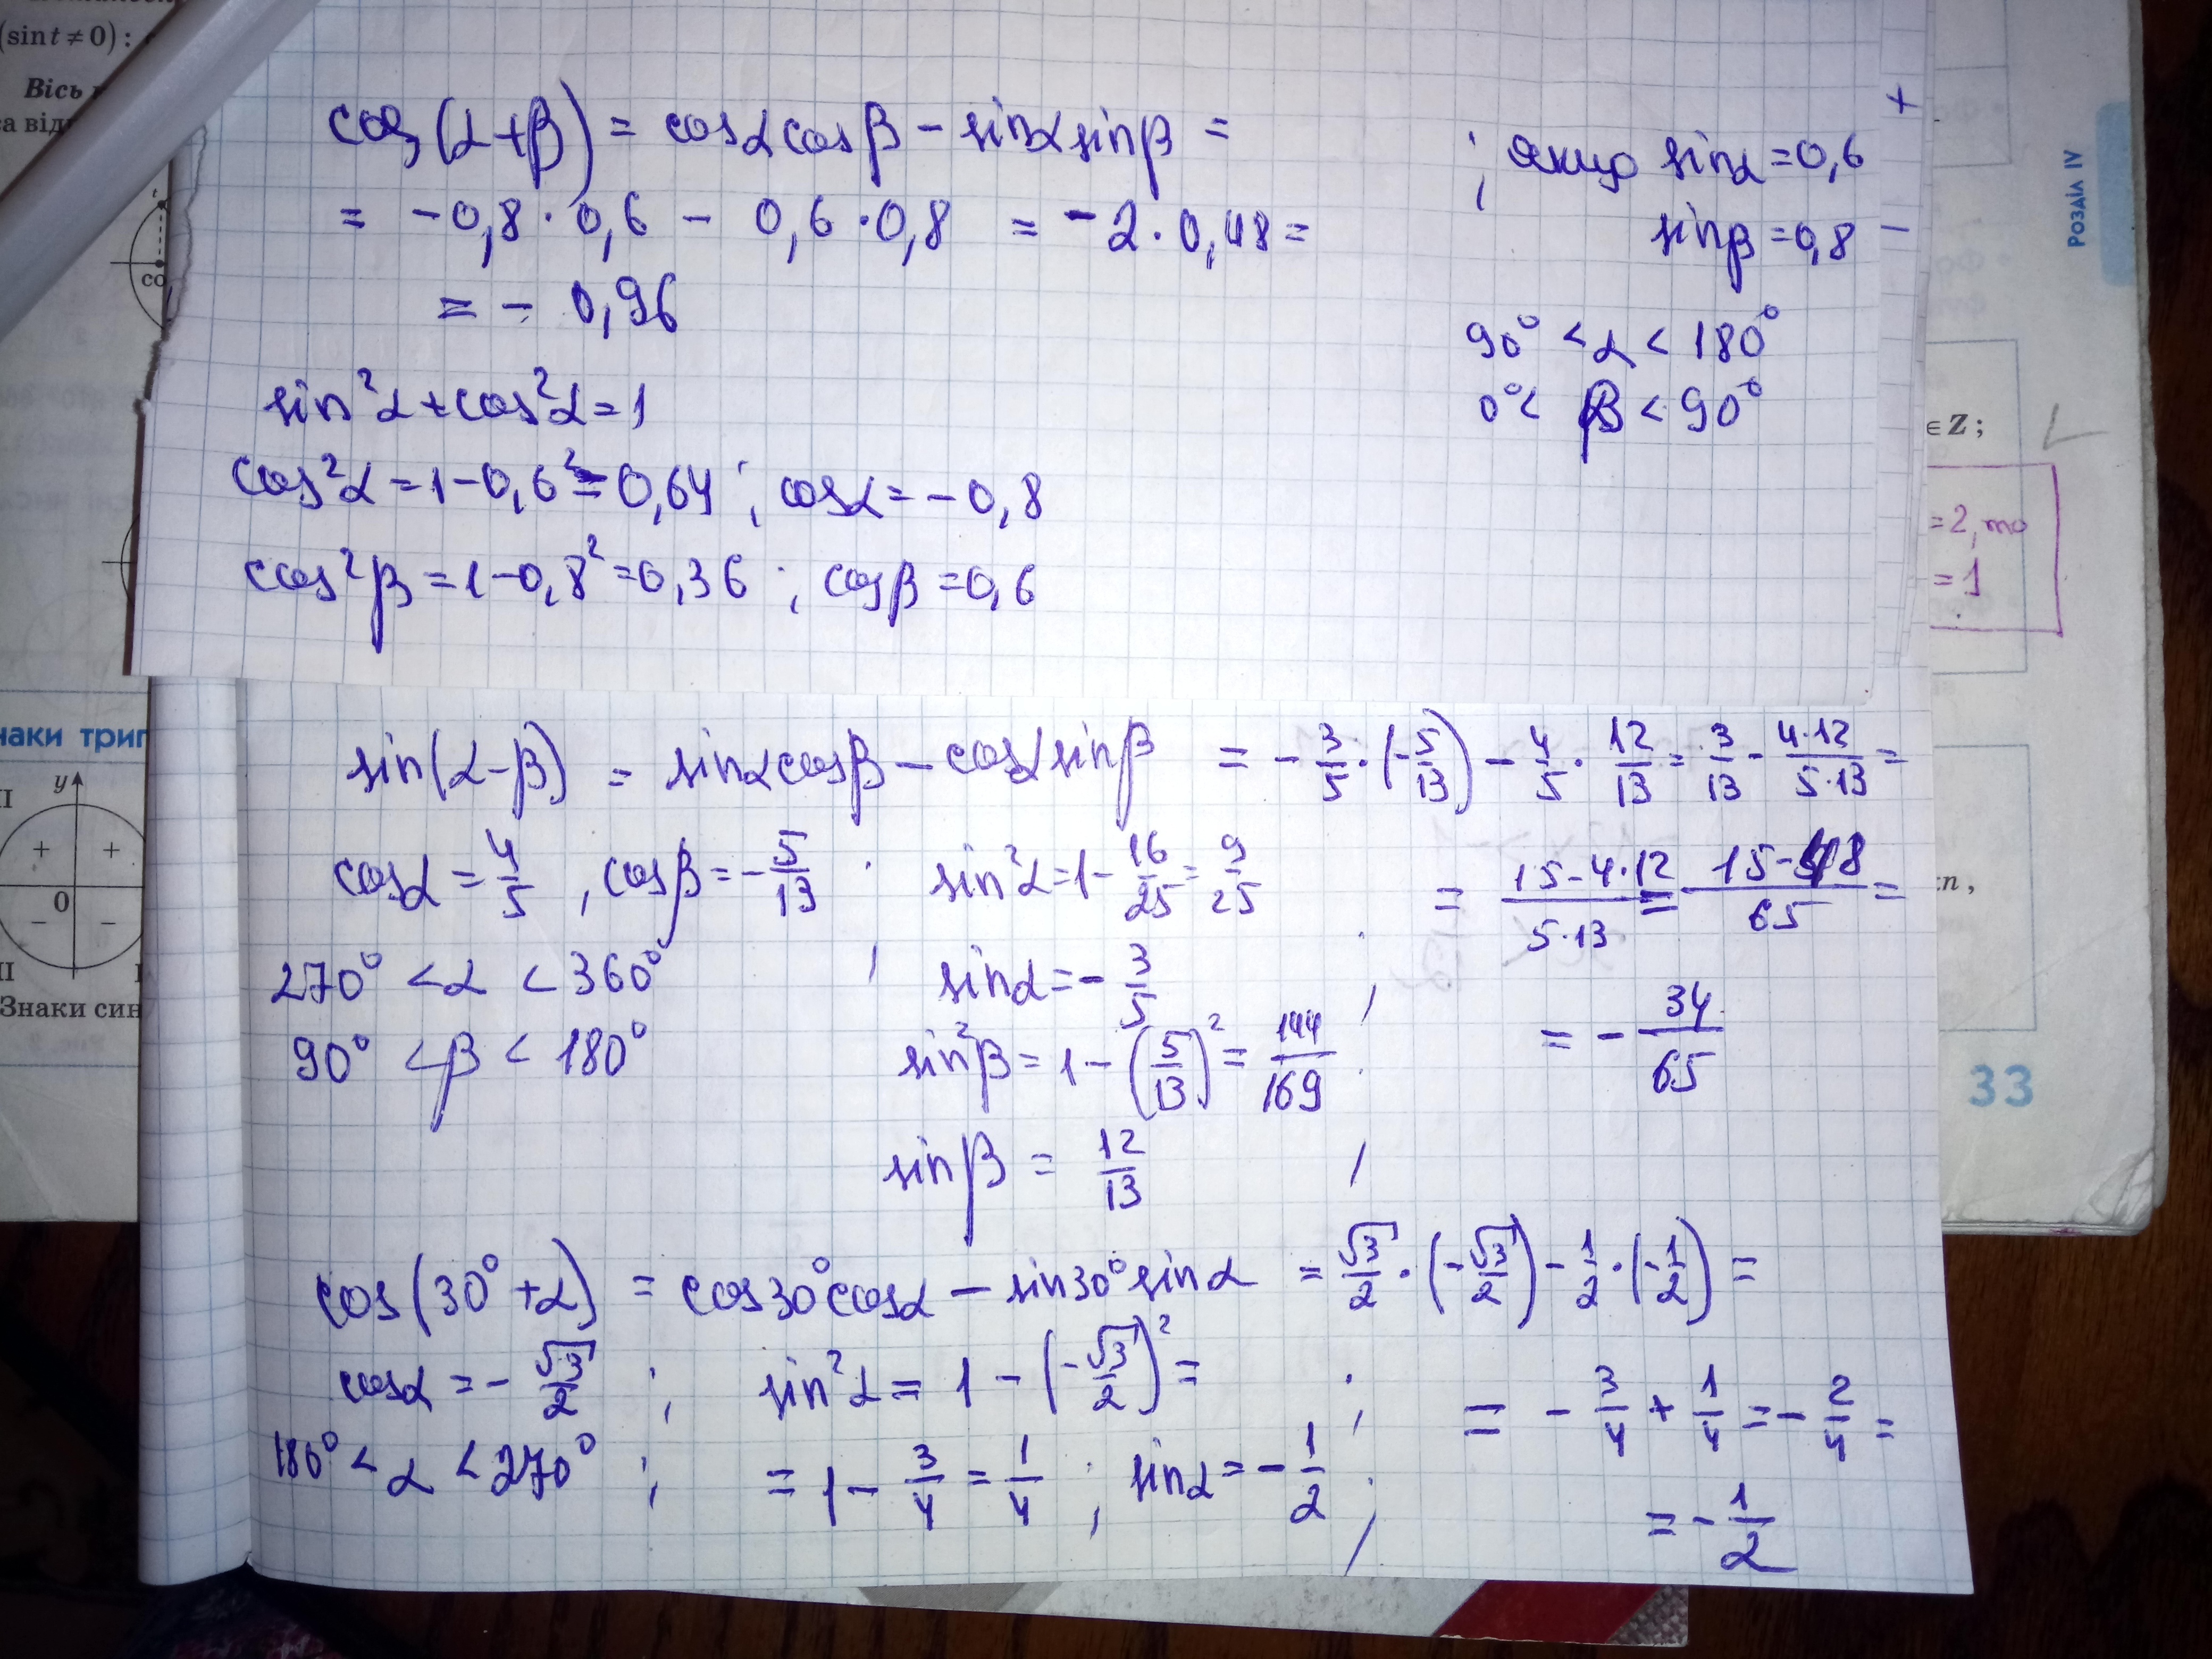 (sin t ≠ 0) :
Вісь
а від
t
со
cos(α+β) = cosα cosβ − sinα sinβ =
= −0,8 · 0,6 − 0,6 · 0,8 = −2 · 0,48 =
= − 0,96
; якщо sinα = 0,6
+
sinβ = 0,8 −
90° < α < 180°
0° < β < 90°
sin²α + cos²α = 1
cos²α = 1 − 0,6² = 0,64 ; cosα = − 0,8
cos²β = 1 − 0,8² = 0,36 ; cosβ = 0,6
Розділ IV
∈ Z ;
= 2, то
= 1
наки триг
y
II
+ +
0
− −
Знаки син
sin(α−β) = sinα cosβ − cosα sinβ = − 3/5 · (−5/13) − 4/5 · 12/13 = 3/13 − 4·12/5·13 =
cosα = 4/5 , cosβ = − 5/13 ; sin²α = 1 − 16/25 = 9/25
= 15−4·12/5·13 = 15−48/65 =
270° < α < 360° sinα = − 3/5 ;
= − 34/65
90° < β < 180° sin²β = 1 − (5/13)² = 144/169 ;
sinβ = 12/13
cos(30°+α) = cos30° cosα − sin30° sinα = √3/2 · (−√3/2) − 1/2 · (−1/2) =
cosα = − √3/2 ; sin²α = 1 − (−√3/2)² = ;
= − 3/4 + 1/4 = − 2/4 =
180° < α < 270° ; = 1 − 3/4 = 1/4 ; sinα = − 1/2 ;
= − 1/2
πn ,
33